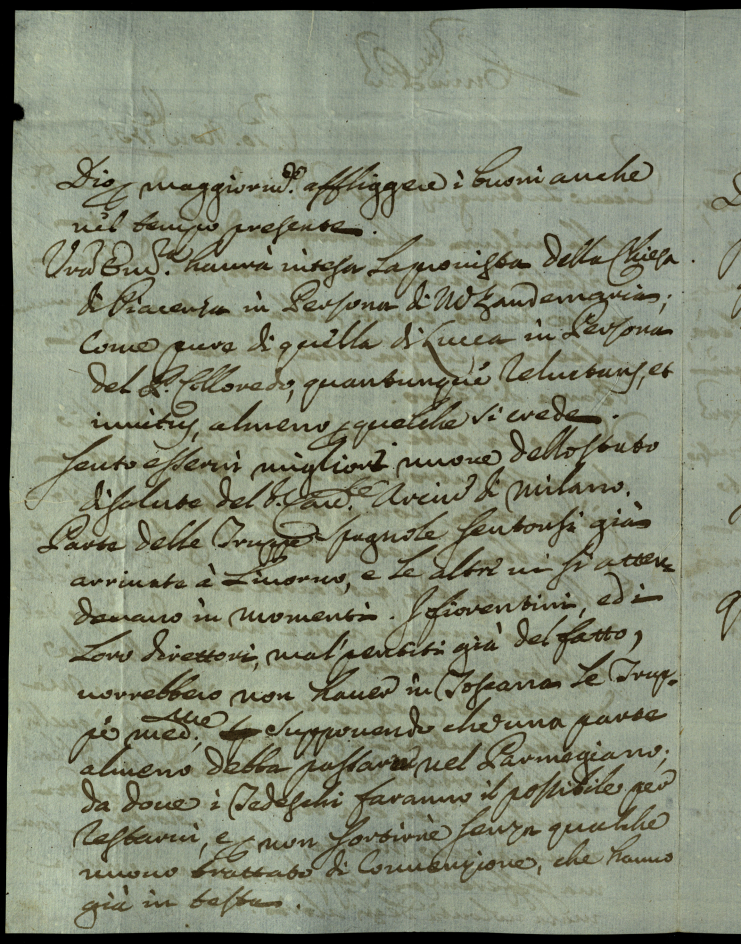 Dio p maggiorm.te affliggere i buoni anche
nel tempo presente.
Vrã Em.za haurà intesa la provista della Chiesa
di Piacenza in Persona di M.r Zandemaria;
Come pure di quella di Lucca in Persona
del P. Colloredo, quantunque reluctans, et
invitus, almeno p quelche si crede.
Sento esservi migliori nuove dello stato
di salute del S. Car.le Arciv.o di Milano.
Parte delle Truppe Spagnole sentonsi già
arrivate à Livorno, e le altre vi si atten-
devano in momenti. I fiorentini, ed i
Loro direttori, mal pentiti già del fatto,
vorrebbero non haver in Toscana le Trup-
pe med.me; supponendo che una parte
almeno debba passare nel Parmegiano;
da dove i Tedeschi faranno il possibile per
restarvi, e p non sortirne senza qualche
nuovo trattato di Convenzione, che hanno
già in testa.